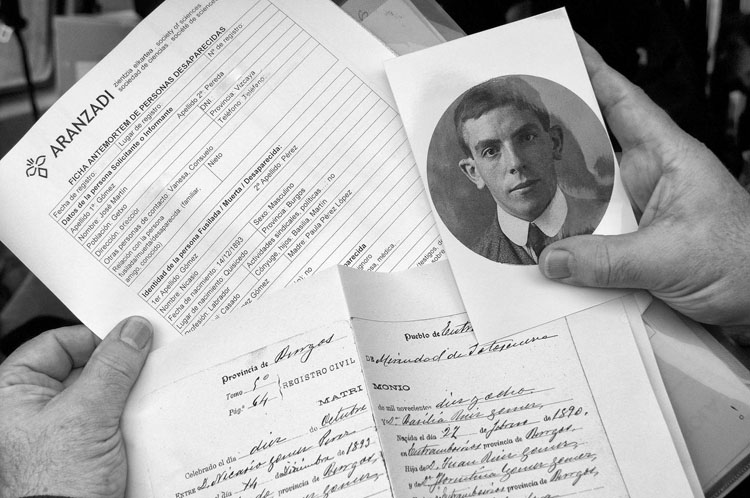 ARANZADI
zientzia elkartea society of sciences
sociedad de ciencias société de sciences
FICHA ANTEMORTEM DE PERSONAS DESAPARECIDAS
Fecha de registro: Lugar de registro: Nº de registro:
Datos de la persona Solicitante o Informante
Apellido 1º: Gómez Apellido 2º: Pereda
Nombre: José Martín DNI:
Población: Getxo Provincia: Vizcaya
Dirección: dirección Teléfono: Teléfono
Otras personas de contacto: Vanesa, Consuelo
Relación con la persona Nieto
fusilada/muerta/desaparecida (familiar,
amigo, conocido)
Identidad de la persona Fusilada / Muerta / Desaparecida:
1er Apellido: Gómez 2º Apellido: Pérez
Nombre: Nicasio Sexo: Masculino
Fecha de nacimiento: 14/12/1893 Provincia: Burgos
Lugar de nacimiento: Quisicedo Actividades sindicales, políticas: no
Profesión: Labrador Cónyuge, hijos: Basilia, Martín
Casado Madre: Paula Pérez López
Gómez
Provincia de Burgos
Tomo 5º
Pág.ª 64
REGISTRO CIVIL
MATRI
Celebrado el día diez de Octubre
ENTRE D. Nicasio Gomez Perez
14 Diciembre de 1893
provincia de Burgos,
Pueblo de
DE
MONIO
de mil novecientos diez y ocho
Y D.ª Basilia Ruiz Gomez,
Nacida el día 27 de febrero de 1890.
en provincia de Burgos.
Hija de D. Juan Ruiz Gomez,
y de Gomez Gomez,
provincia de Burgos,